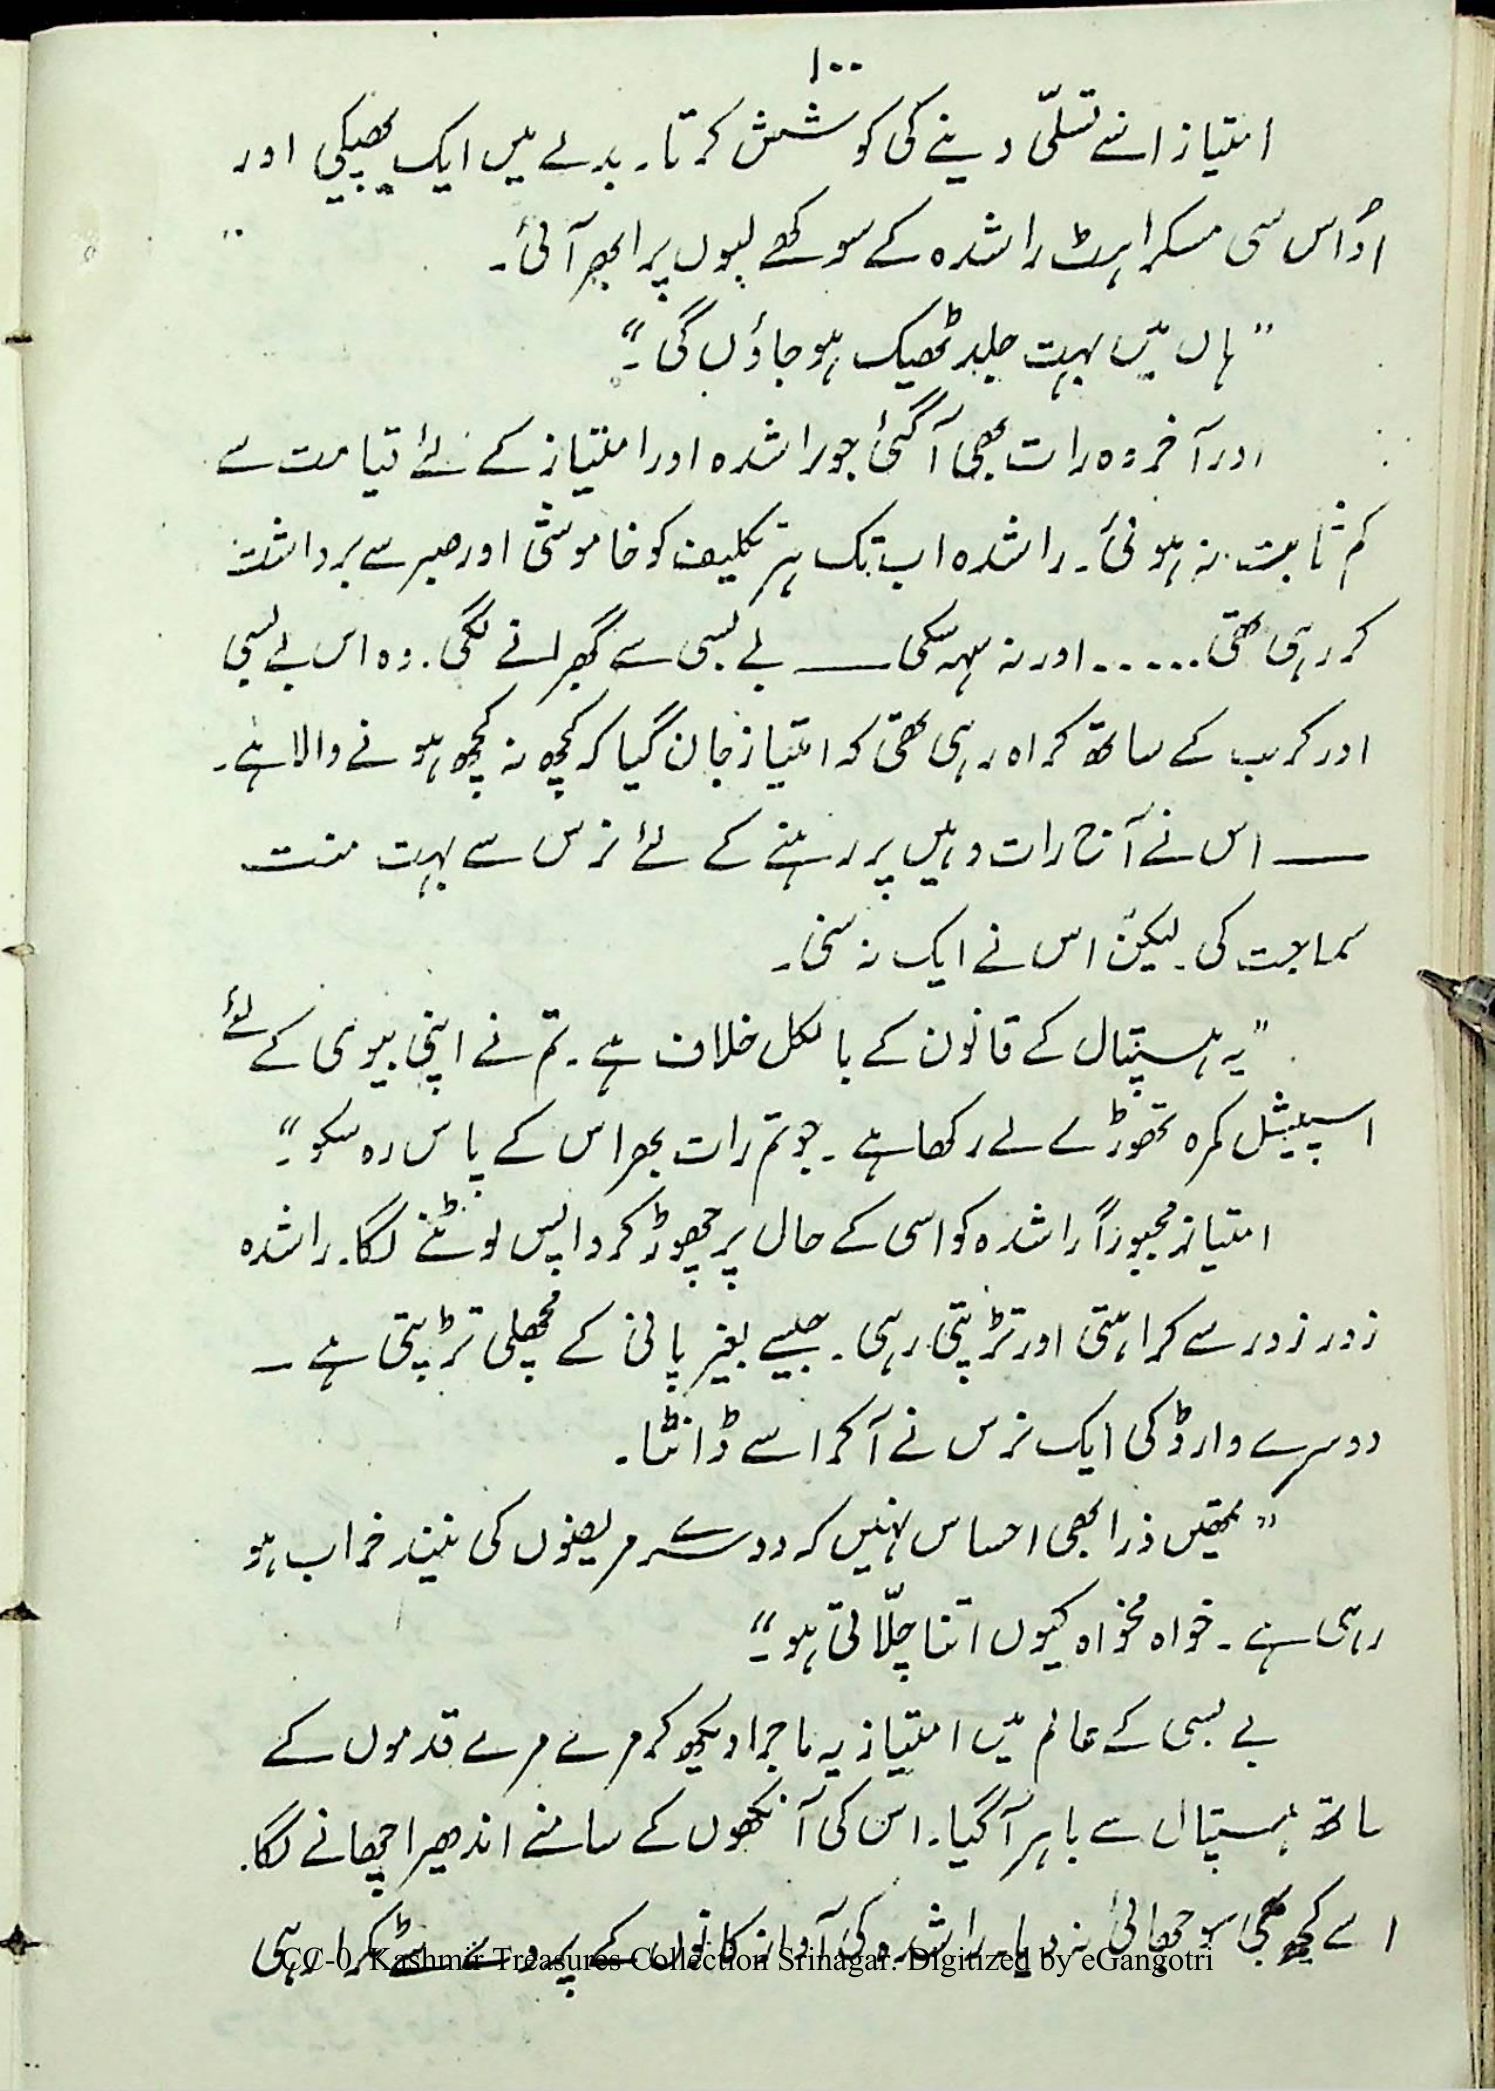 ۱۰۰
امتیاز اسے تسلّی دینے کی کوشش کرتا۔ بدلے میں ایک پھیکی اور
اُداس سی مسکراہٹ راشدہ کے سوکھے لبوں پر ابھر آئی۔
"ہاں میں بہت جلد ٹھیک ہو جاؤں گی۔"
اور آخر وہ رات بھی آ گئی جو راشدہ اور امتیاز کے لئے قیامت سے
کم ثابت نہ ہوئی۔ راشدہ اب تک ہر تکلیف کو خاموشی اور صبر سے برداشت
کر رہی تھی..... اور نہ سہہ سکی —— بے بسی سے گھبرانے لگی۔ وہ اس بے بسی
اور کرب کے ساتھ کراہ رہی تھی کہ امتیاز جان گیا کہ کچھ نہ کچھ ہونے والا ہے۔
—— اس نے آج رات وہیں پر رہنے کے لئے نرس سے بہت منت
سماجت کی۔ لیکن اس نے ایک نہ سنی۔
"یہ ہسپتال کے قانون کے بالکل خلاف ہے۔ تم نے اپنی بیوی کے لئے
اسپیشل کمرہ تھوڑے لے رکھا ہے۔ جو تم رات بھر اس کے پاس رہ سکو۔"
امتیاز مجبوراً راشدہ کو اسی کے حال پر چھوڑ کر واپس لوٹنے لگا۔ راشدہ
زور زور سے کراہتی اور تڑپتی رہی۔ جیسے بغیر پانی کے مچھلی تڑپتی ہے —
دوسرے وارڈ کی ایک نرس نے آ کر اسے ڈانٹا۔
"تمھیں ذرا بھی احساس نہیں کہ دوسرے مریضوں کی نیند خراب ہو
رہی ہے۔ خواہ مخواہ کیوں اتنا چلّاتی ہو۔"
بے بسی کے عالم میں امتیاز یہ ماجرا دیکھ کر مرے مرے قدموں کے
ساتھ ہسپتال سے باہر آ گیا۔ اس کی آنکھوں کے سامنے اندھیرا چھانے لگا۔
اسے کچھ بھی سوجھائی نہ دیا۔ راشدہ کی آواز کانوں کے پردے سے ٹکرا رہی
CC-0. Kashmir Treasures Collection Srinagar. Digitized by eGangotri